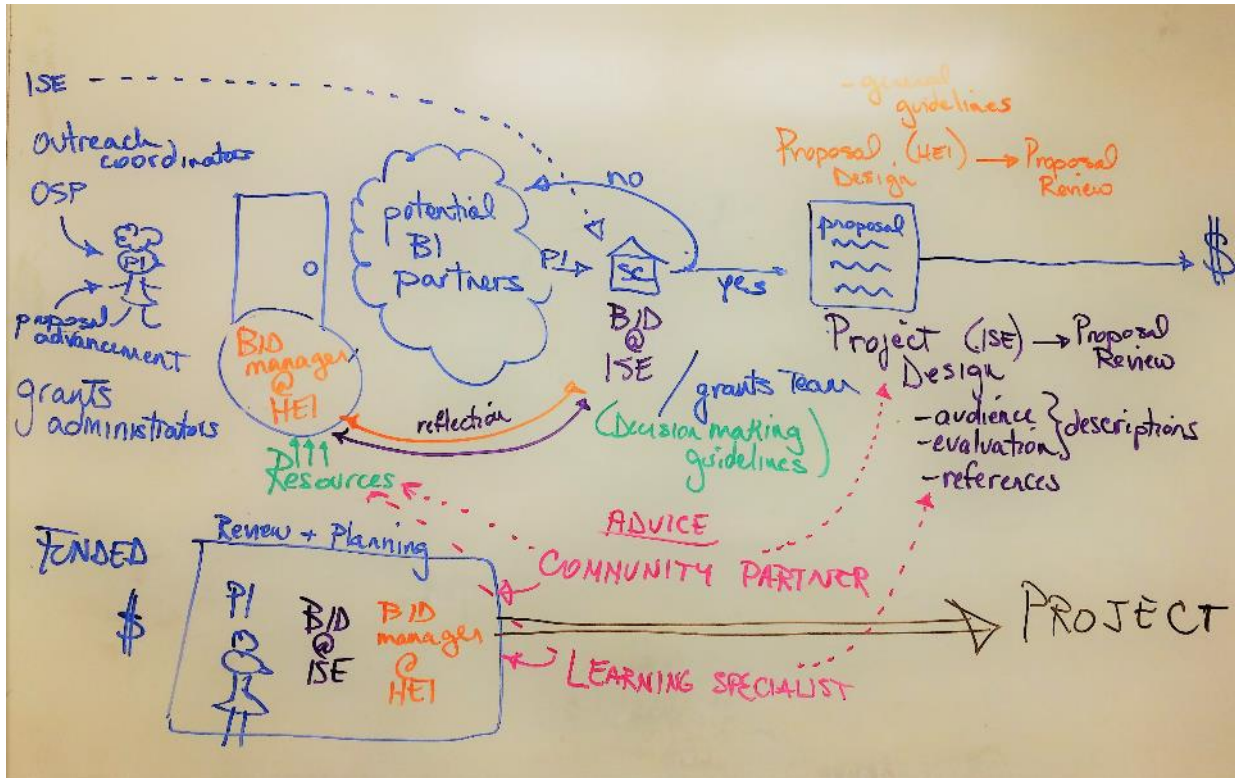 ISE
Outreach
coordinators
OSP
PI
proposal
advancement
grants
administrators
BID
manager
@
HEI
Resources
potential
BI
partners
no
PI
SC
yes
BID
@
ISE
grants Team
(Decision making
guidelines)
reflection
- general
guidelines
Proposal (HEI)
Design
Proposal
Review
proposal
$
Project (ISE)
Design
Proposal
Review
- audience
- evaluation
descriptions
- references
ADVICE
COMMUNITY PARTNER
LEARNING SPECIALIST
FUNDED
$
Review + Planning
PI
BID
@
ISE
BID
manager
@
HEI
PROJECT